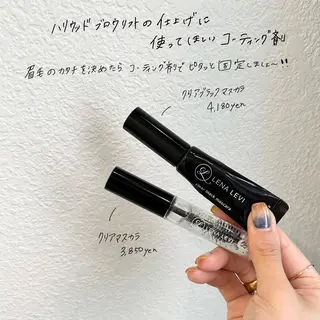 ハリウッドブロウリフトの仕上げに
使ってほしいコーティング剤
眉毛のカタチを決めたらコーティング剤でピタッと固定しましょ〜!!
クリアブラックマスカラ
4,180yen
LENA LEVI
clear black mascara
クリアマスカラ
3,850yen
LENA LEVI